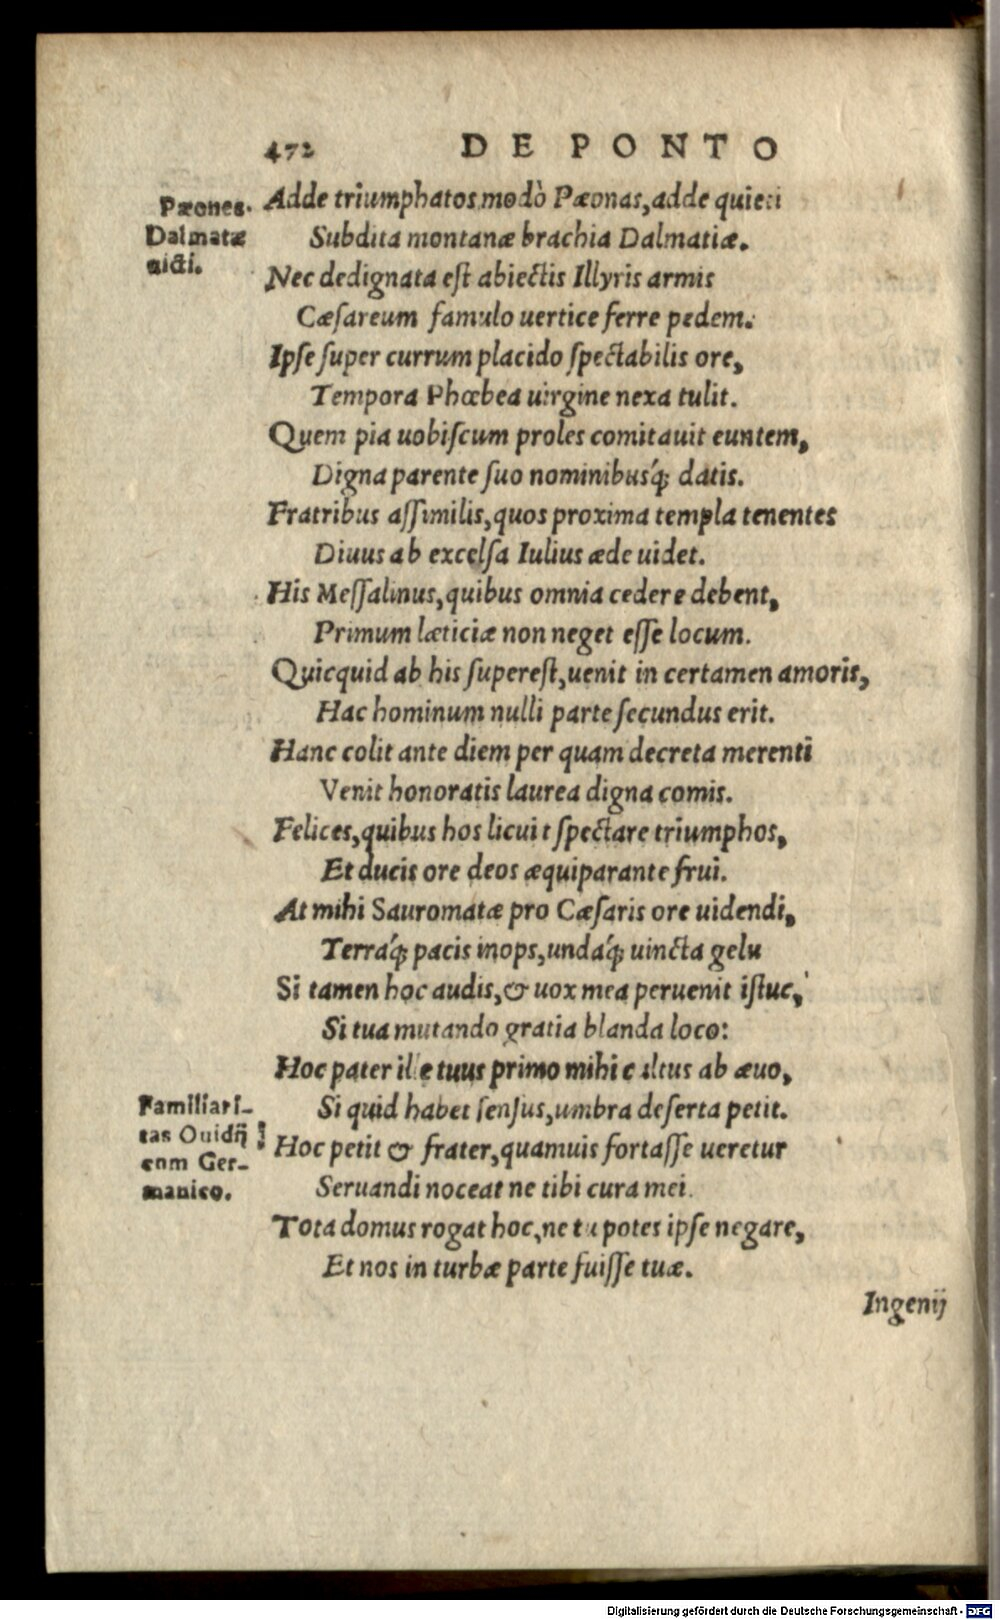 472 DE PONTO
Pæones.
Dalmatæ
uicti.
Adde triumphatos modò Pæonas, adde quieti
Subdita montanæ brachia Dalmatiæ.
Nec dedignata est abiectis Illyris armis
Cæsareum famulo uertice ferre pedem.
Ipse super currum placido spectabilis ore,
Tempora Phœbea uirgine nexa tulit.
Quem pia uobiscum proles comitauit euntem,
Digna parente suo nominibusq́; datis.
Fratribus assimilis, quos proxima templa tenentes
Diuus ab excelsa Iulius æde uidet.
His Messalinus, quibus omnia cedere debent,
Primum læticiæ non neget esse locum.
Quicquid ab his superest, uenit in certamen amoris,
Hac hominum nulli parte secundus erit.
Hanc colit ante diem per quam decreta merenti
Venit honoratis laurea digna comis.
Felices, quibus hos licuit spectare triumphos,
Et ducis ore deos æquiparante frui.
At mihi Sauromatæ pro Cæsaris ore uidendi,
Terraq́; pacis inops, undaq́; uincta gelu
Si tamen hoc audis, & uox mea peruenit istuc,
Si tua mutando gratia blanda loco:
Hoc pater ille tuus primo mihi cultus ab æuo,
Si quid habet sensus, umbra deserta petit.
Familiari-
tas Ouidij
cum Ger-
manico.
Hoc petit & frater, quamuis fortasse ueretur
Seruandi noceat ne tibi cura mei.
Tota domus rogat hoc, ne tu potes ipse negare,
Et nos in turbæ parte fuisse tuæ.
Ingenij
Digitalisierung gefördert durch die Deutsche Forschungsgemeinschaft - DFG